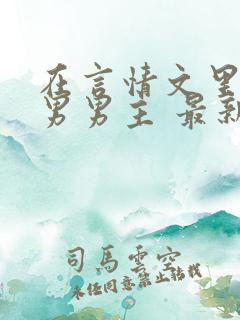 在言情文里
男男主 最新
司馬雲空
未经同意禁止转载